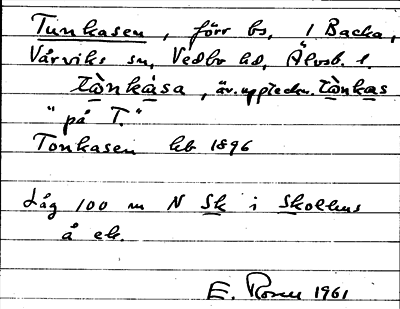 Tunkasen, förr bs, i Backa,
Vårviks sn, Vedbo hd, Älvsb. l.
tònkàsa, äv. uppteckn. tònkas
"på T."
Tonkasen kb 1896
Låg 100 m N Sk i Skolhus
å ek.
E. Rosell 1961